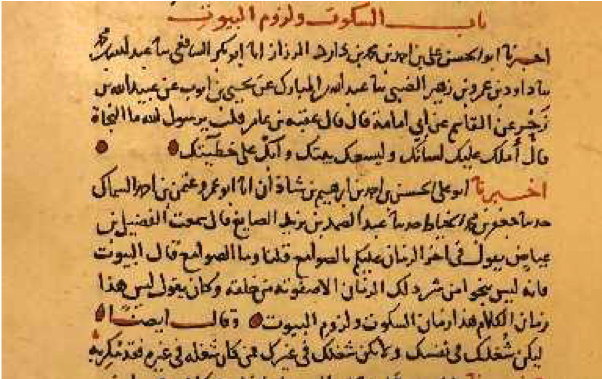 باب السكوت ولزوم البيوت
اخبرنا ابو الحسن علي بن احمد بن محمد بن داود الرزاز ابا ابو بكر الشافعي سا عبد الله بن محمد
سا داود بن عمرو بن زهير الضبي سا عبد الله بن المبارك عن يحيى بن ايوب عن عبيد الله بن
زحر عن القاسم عن ابي امامة قال قال عقبه بن عامر قلت يرسول الله ما النجاة
قال أملك عليك لسانك وليسعك بيتك وابك على خطيئتك
اخبرنا ابو علي الحسن بن احمد بن ابرهيم بن شاذان ابا ابو عمرو عثمن بن احمد السماك
حدسا جعفر بن محمد الخياط حدسا عبد الصمد بن يزيد الصايغ قال سمعت الفضيل بن
عياض يقول في اخر الزمان عليكم بالصوامع قلنا وما الصوامع قال البيوت
فانه ليس ينجوا من شر ذلك الزمان الا صفوته من خلقه وكان يقول ليس هذا
زمان الكلام هذا زمان السكوت ولزوم البيوت وقال ايضا
ليكن شغلك في نفسك ولا يكن شغلك في غيرك فمن كان شغله في غيره فقد مكر به